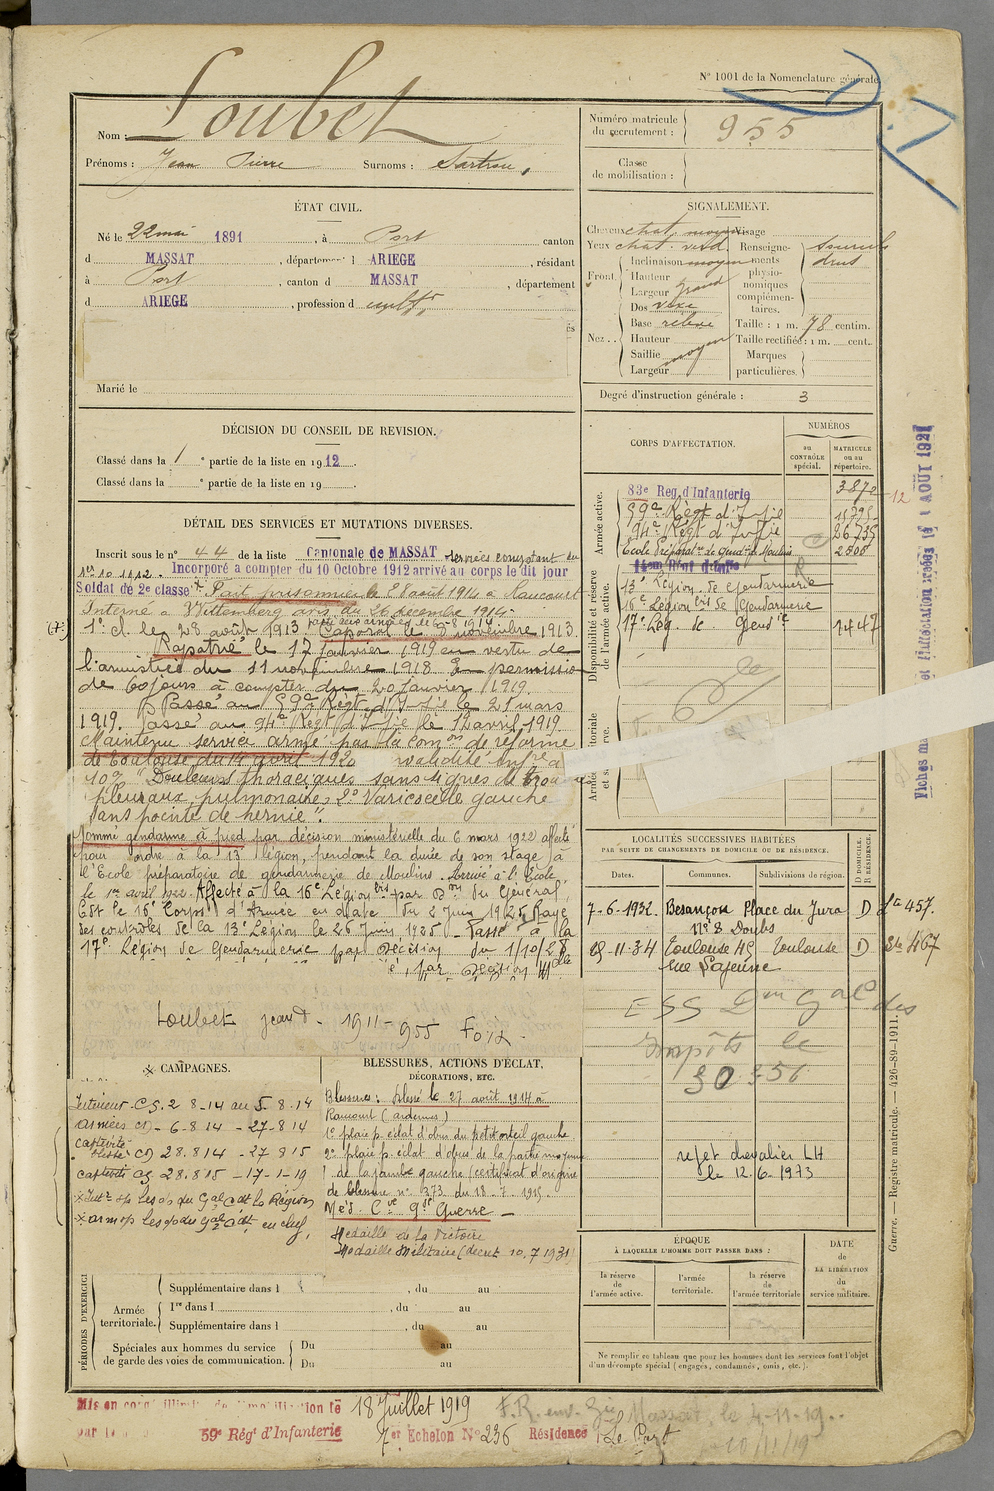 N° 1001 de la Nomenclature générale
Nom : Loubet
Prénoms : Jean Pierre Surnoms : Sartrou,
Numéro matricule du recrutement : 955
Classe de mobilisation :
ÉTAT CIVIL.
Né le 22 mai 1891, à Port canton
d MASSAT, département d ARIEGE, résidant
à Port, canton d MASSAT, département
d ARIEGE, profession d cultr,
Marié le
SIGNALEMENT.
Cheveux chat. moyen Visage
Yeux chat. verd.
Front. Inclinaison moyen
Hauteur
Largeur grand
Nez.. Dos vexe
Base relevé
Hauteur
Saillie moyen
Largeur
Renseignements physionomiques complémentaires. sourcils drus
Taille : 1 m. 78 centim.
Taille rectifiée : 1 m. cent.
Marques particulières.
Degré d'instruction générale : 3
DÉCISION DU CONSEIL DE REVISION.
Classé dans la 1e partie de la liste en 1912.
Classé dans la e partie de la liste en 19
DÉTAIL DES SERVICES ET MUTATIONS DIVERSES.
Inscrit sous le n° 44 de la liste Cantonale de MASSAT services comptant du
1er 10 1912. Incorporé a compter du 10 Octobre 1912 arrivé au corps le dit jour
Soldat de 2e classe Fait prisonnier le 28 août 1914 a Raucourt
Interné a Wittemberg avis du 26 décembre 1914.
1e cl. le 28 août 1913. Caporal le 8 novembre 1913.
Rapatrié le 17 janvier 1919 en vertu de
l'armistice du 11 novembre 1918. En permission
de 60 jours à compter du 20 Janvier 1919.
Passé au 59e Régt d'Inf ie le 21 mars
1919. Passé au 94e Regt d'Inf ie le 12 avril 1919
Maintenu service armé par la Comon de réforme
de Toulouse du 14 avril 1920 validité infre à
10% "Douleurs thoraciques sans signes de
pleuraux, pulmonaires, 2° Varicocèle gauche
sans pointe de hernie".
Nommé gendarme à pied par décision ministérielle du 6 mars 1922 affecté
pour ordre à la 13e légion, pendant la durée de son stage à
l'École préparatoire de gendarmerie de Moulins. Arrivé à l'École
le 1er avril 1922. Affecté à la 16e Légion bis par Don du Général
Cdt le 16e Corps d'Armée en date du 2 Juin 1925. Rayé
des contrôles de la 13e Légion le 26 Juin 1925 - Passé à la
17e Légion de Gendarmerie par Décision du 1/10/28
par Decision
Loubet jean - 1911 - 955 Foix -
CORPS D'AFFECTATION.
NUMÉROS
au CONTRÔLE spécial.
MATRICULE ou au répertoire.
Armée active.
83e Reg. d'Infanterie 3872
59e Régt d'Inf ie
94e Régt d'Inf ie 26735
Ecole Préparat re de Gendie Moulins
Disponibilité et réserve de l'armée active.
13e Légion de Gendarmerie
16e Légion bis de Gendarmerie
17e Lég. de Gendie 1447
Fiches ma et d'affectation créées le 1 AOUT 1921
LOCALITÉS SUCCESSIVES HABITÉES
PAR SUITE DE CHANGEMENTS DE DOMICILE OU DE RÉSIDENCE.
Dates. Communes. Subdivisions de région. D DOMICILE. R RÉSIDENCE.
7-6-1932. Besançon Place du Jura N° 8 Doubs D 457.
29-11-34 Toulouse 49 rue Lafeune Toulouse D 467
ESS Don Gal des
Impôts le
30 3 56
refet chevalier LH
le 12.6.1973
CAMPAGNES.
Intérieur. CS. 2 8-14 au 5.8.14
armées CD - 6-8 14 - 27-8 14
captivité blessé CD 28.8 14 - 27 8 15
captivité CS 28.8 15 - 17-1-19
BLESSURES, ACTIONS D'ÉCLAT,
DÉCORATIONS, ETC.
Blessures : blessé le 27 août 1914 à
Raucourt (ardennes)
1° plaie p. éclat d'obus du petit orteil gauche
2° plaie p. éclat d'obus de la partie moyenne
de la jambe gauche (certificat d'origine
de blessure n° 373 du 18. 7. 1915.
Méd. Cve Gde Guerre -
Médaille de la Victoire
Médaille Militaire (décret 10.7 1931)
PÉRIODES D'EXERCICE
Armée territoriale. Supplémentaire dans l , du au
1re dans l , du au
Supplémentaire dans l , du au
Spéciales aux hommes du service de garde des voies de communication. Du au
Du au
ÉPOQUE
À LAQUELLE L'HOMME DOIT PASSER DANS :
la réserve de l'armée active.
l'armée territoriale.
la réserve de l'armée territoriale
DATE de LA LIBÉRATION du service militaire.
Ne remplir ce tableau que pour les hommes dont les services font l'objet
d'un décompte spécial (engagés, condamnés, omis, etc.).
Guerre. — Registre matricule. — 426-89-1911.
Mis en congé illimité de démobilisation le 18 Juillet 1919
par 59e Régt d'Infanterie 7er Echelon N° 236 Résidence Le Port
F.R. env. Gie Massat le 4-11-19..